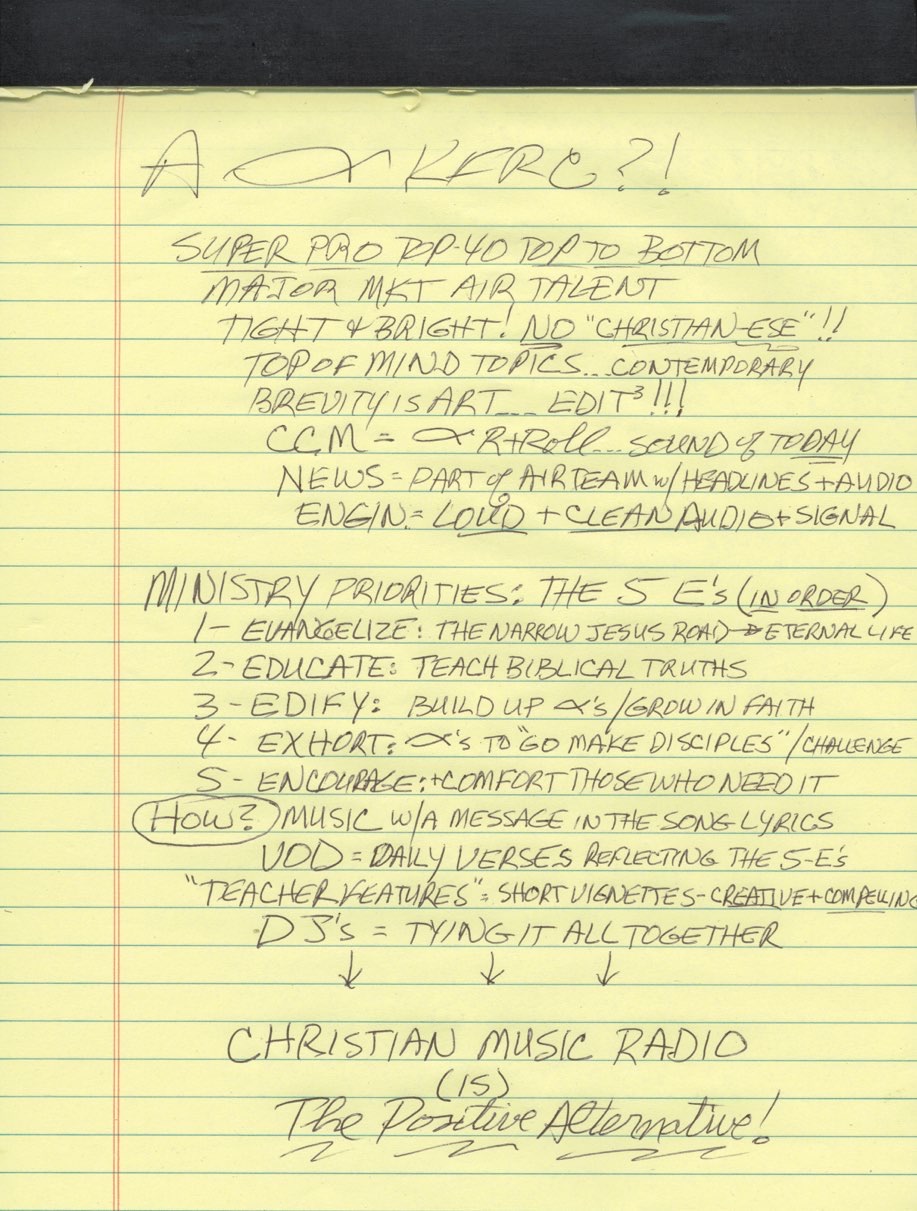 A KFRC?!
SUPER PRO TOP-40 TOP TO BOTTOM
MAJOR MKT AIR TALENT
TIGHT & BRIGHT! NO "CHRISTIAN-ESE"!!
TOP OF MIND TOPICS...CONTEMPORARY
BREVITY IS ART.... EDIT³!!!
CCM = R+Roll... SOUND of TODAY
NEWS = PART of AIR TEAM w/HEADLINES + AUDIO
ENGIN. = LOUD + CLEAN AUDIO + SIGNAL
MINISTRY PRIORITIES: THE 5 E's (IN ORDER)
1- EVANGELIZE: THE NARROW JESUS ROAD → ETERNAL LIFE
2- EDUCATE: TEACH BIBLICAL TRUTHS
3- EDIFY: BUILD UP 's/GROW IN FAITH
4- EXHORT: 's TO "GO MAKE DISCIPLES"/CHALLENGE
5- ENCOURAGE: + COMFORT THOSE WHO NEED IT
HOW? MUSIC W/A MESSAGE IN THE SONG LYRICS
VOD = DAILY VERSES REFLECTING THE 5-E's
"TEACHER FEATURES" = SHORT VIGNETTES - CREATIVE + COMPELLING
DJ's = TYING IT ALL TOGETHER
↓ ↓ ↓
CHRISTIAN MUSIC RADIO
(IS)
The Positive Alternative!